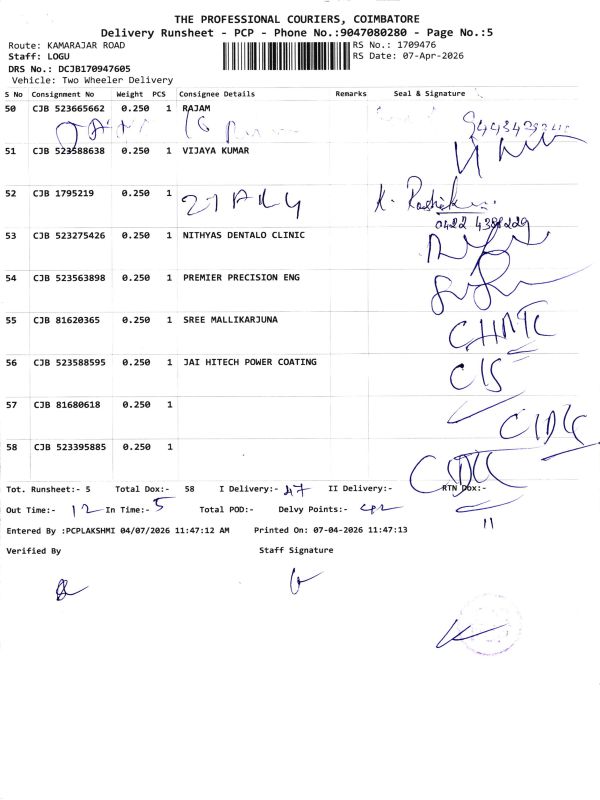 THE PROFESSIONAL COURIERS, COIMBATORE
Delivery Runsheet - PCP - Phone No.:9047080280 - Page No.:5
Route: KAMARAJAR ROAD RS No.: 1709476
Staff: LOGU RS Date: 07-Apr-2026
DRS No.: DCJB170947605
Vehicle: Two Wheeler Delivery
S No Consignment No Weight PCS Consignee Details Remarks Seal & Signature
50 CJB 523665662 0.250 1 RAJAM
51 CJB 523588638 0.250 1 VIJAYA KUMAR
52 CJB 1795219 0.250 1
0422 4388229
53 CJB 523275426 0.250 1 NITHYAS DENTALO CLINIC
54 CJB 523563898 0.250 1 PREMIER PRECISION ENG
55 CJB 81620365 0.250 1 SREE MALLIKARJUNA
56 CJB 523588595 0.250 1 JAI HITECH POWER COATING
57 CJB 81680618 0.250 1
58 CJB 523395885 0.250 1
Tot. Runsheet:- 5 Total Dox:- 58 I Delivery:- 47 II Delivery:- RTN Dox:- 11
Out Time:- 12 In Time:- 5 Total POD:- Delvy Points:- 42
Entered By :PCPLAKSHMI 04/07/2026 11:47:12 AM Printed On: 07-04-2026 11:47:13
Verified By Staff Signature